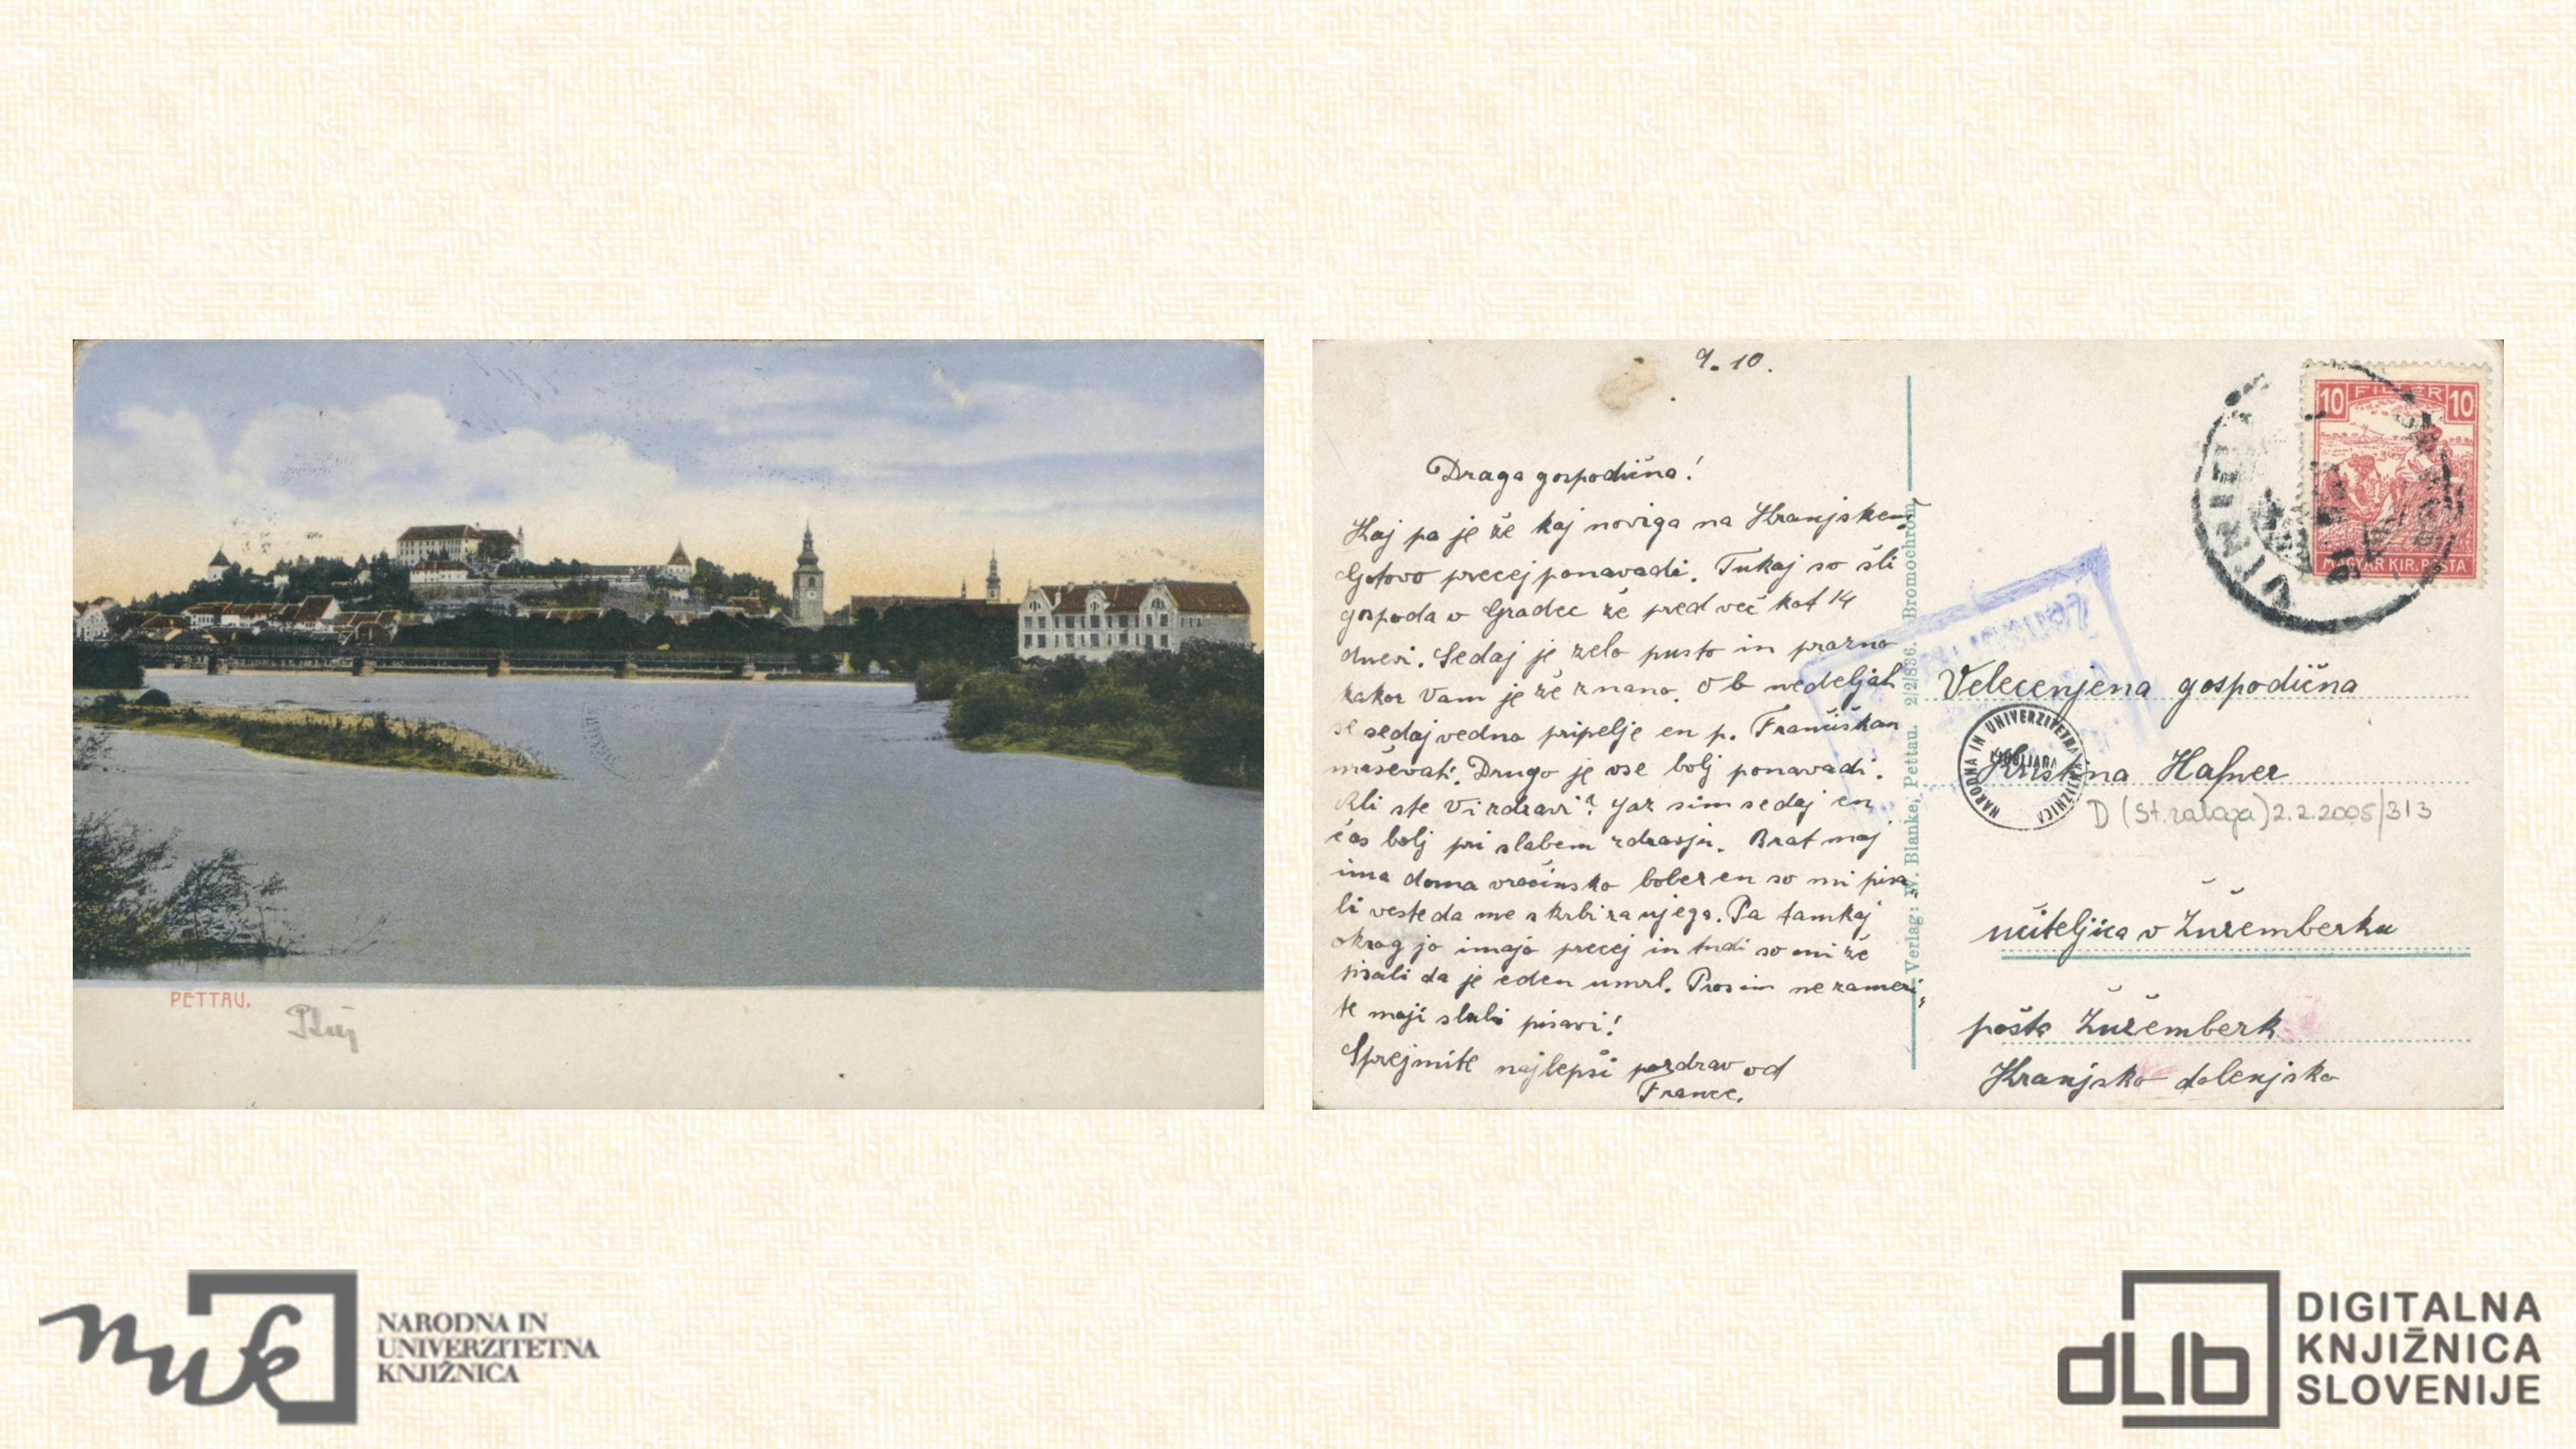 PETTAU.
Ptuj
9. 10.
Draga gospodična!
Kaj pa je že kaj noviga na Kranjskem
Gotovo precej ponavadi. Tukaj so šli
gospoda v Gradec že pred več kot 14
dnevi. Sedaj je zelo pusto in prazno
kakor Vam je že znano. Ob nedeljah
se sedaj vedno pripelje en p. Frančiškan
maševati. Drugo je vse bolj ponavadi.
Ali ste Vi zdravi? Jaz sim sedaj en
čas bolj pri slabem zdravju. Brat moj
ima doma vročinsko bolezen so mi pisa
li veste da me skrbi za njega. Pa tamkaj
okrog jo imajo precej in tudi so mi že
pisali da je eden umrl. Prosim ne zameri-
te moji slabi pisavi!
Sprejmite najlepši pozdrav od
France.
Verlag: W. Blanke, Pettau. 2/2836. Bromochrom
10 FILLER 10
MAGYAR KIR. POSTA
Velecenjena gospodična
Kristina Hafner
NARODNA IN UNIVERZITETNA KNJIŽNICA
LJUBLJANA
D (St. zaloga) 2.2.2005/313
učiteljica v Žužemberku
pošta Žužemberk
Kranjsko dolenjsko
nuk
NARODNA IN
UNIVERZITETNA
KNJIŽNICA
dLib
DIGITALNA
KNJIŽNICA
SLOVENIJE